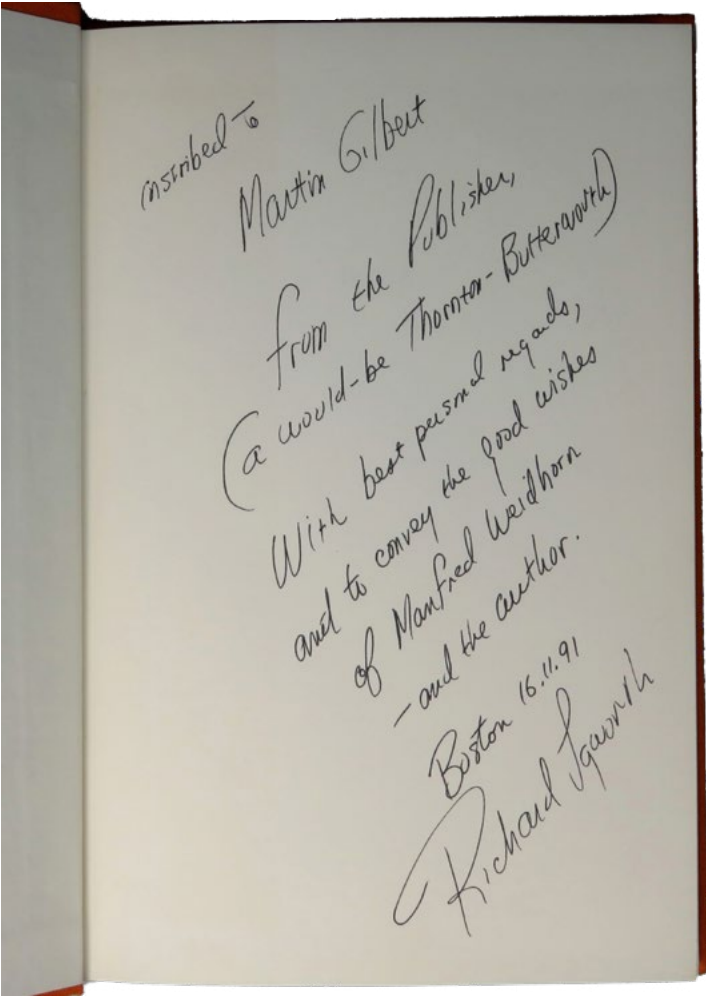 inscribed to
Martin Gilbert
from the Publisher,
(a would-be Thornton-Butterworth)
With best personal regards,
and to convey the good wishes
of Manfred Weidhorn
- and the author.
Boston 16.11.91
Richard Langworth